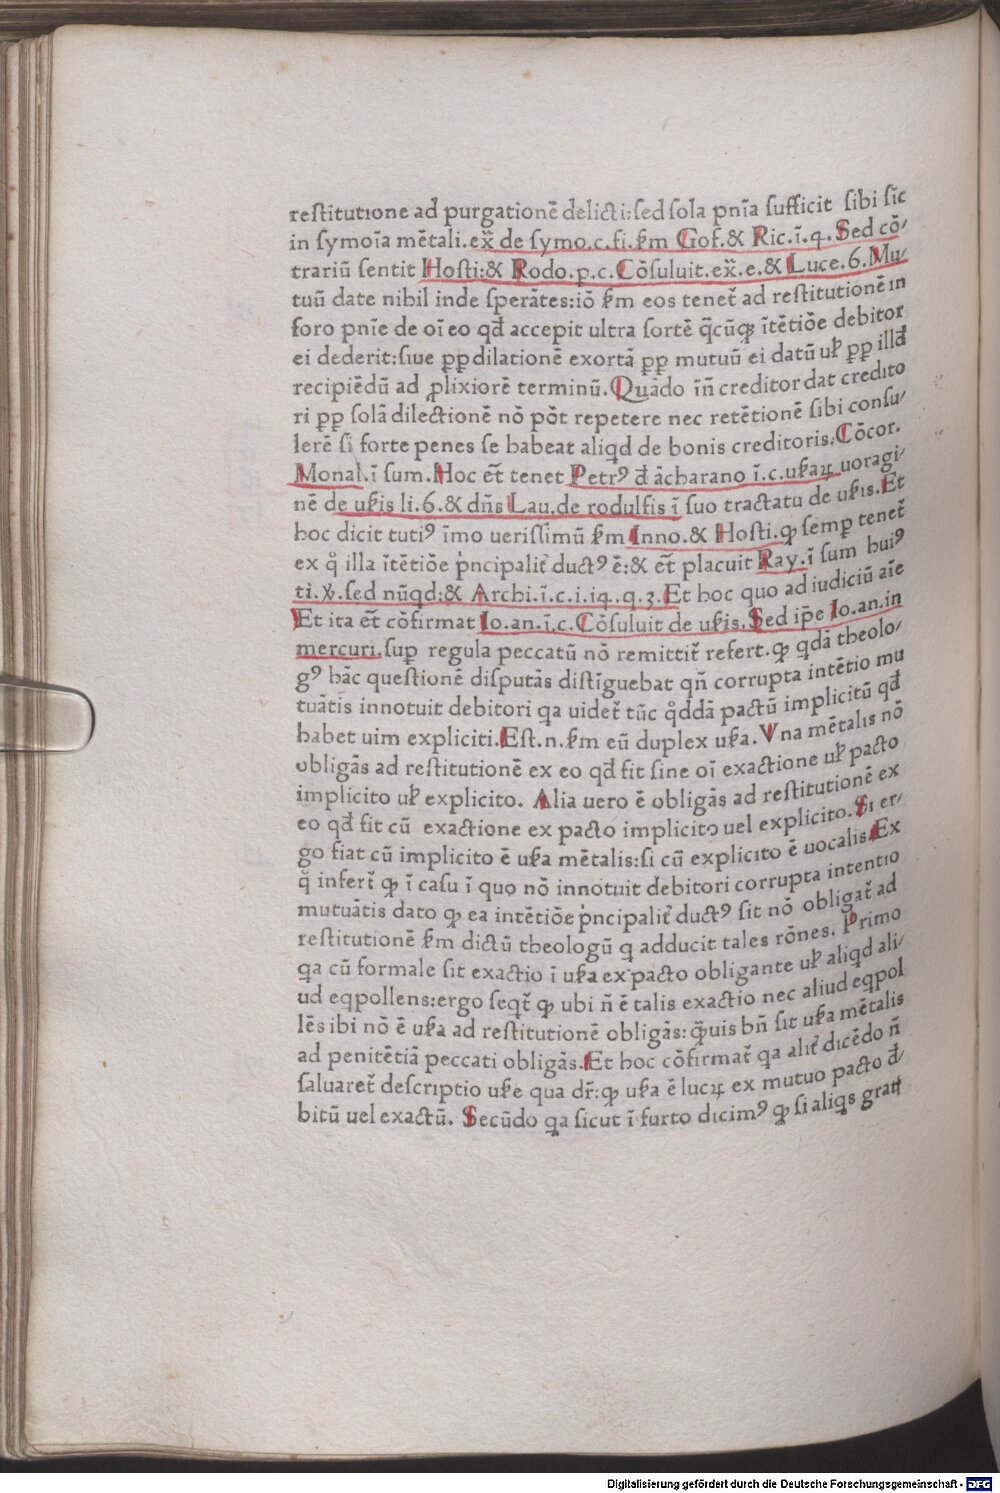 restitutione ad purgationē delicti:sed sola pnīa sufficit sibi sīc
in symoīa mētali.ex̄ de symo.c.fi.ꝑm Gof.& Ric.ī.4. Sed cō-
trariū sentit Hosti:& Rodo.p.c.Cōsuluit.ex̄.e.& Luce.6.Mu-
tuū date nihil inde sperātes:iō ẜm eos tenet̄ ad restitutionē in
foro pnīe de oī eo qđ accepit ultra sortē q̄cūqꝫ ītētiōe debitor
ei dederit:siue ꝓꝑ dilationē exortā ꝓꝑ mutuū ei datū uł ꝓꝑ illđ
recipiēdū ad ꝓlixiorē terminū.Quādo īn̄ creditor dat credito
ri ꝓꝑ solā dilectionē nō pōt repetere nec retētionē sibi consu-
lerē si forte penes se habeat aliqd de bonis creditoris:Cōcor.
Monal.ī sum.Hoc et̄ tenet Petrꝰ đ ācharano ī.c.usaꝝ uoragi-
nē de usis li.6.& dn̄s Lau.de rodulfis ī suo tractatu de usis.Et
hoc dicit tutiꝰ īmo uerissimū ẜm Inno.& Hosti.qꝫ semꝑ tenet̄
ex q̊ illa ītētiōe pͥncipalit̄ ductꝰ ē:& et̄ placuit Ray.ī sum huiꝰ
ti.ꝟ.sed nūqd:& Archi.ī.c.i.i4.q.3.Et hoc quo ad iudiciū aīe
Et ita et̄ cōfirmat Io.an.ī.c.Cōsuluit de usis.Sed ip̄e Io.an.in
mercuri.suꝑ regula peccatū nō remittit̄ refert.qꝫ qdā theolo-
gꝰ hāc questionē disputās distīguebat qn̄ corrupta intētio mu
tuātis innotuit debitori qa uidet̄ tūc q̊ddā pactū implicitū qđ
habet uim expliciti.Est.n.ẜm eū duplex usa.Vna mētalis nō
obligās ad restitutionē ex eo qđ fit sine oī exactione uł pacto
implicito uł explicito. Alia uero ē obligās ad restitutionē ex
eo qđ fit cū exactione ex pacto implicito uel explicito.Si er-
go fiat cū implicito ē usa mētalis:si cū explicito ē uocalis.Ex
q̊ infert̄ qꝫ ī casu ī quo nō innotuit debitori corrupta intentio
mutuātis dato qꝫ ea intētiōe pͥncipalit̄ ductꝰ sit nō obligat̄ ad
restitutionē ẜm dictū theologū q adducit tales rōnes. Primo
qa cū formale sit exactio ī usa ex pacto obligante uł aliqd ali-
ud eqpollens:ergo seqt̄ qꝫ ubi n̄ ē talis exactio nec aliud eqpol
lēs ibi nō ē usa ad restitutionē obligās:q̄uis bn̄ sit usa mētalis
ad penitētiā peccati obligās.Et hoc cōfirmat̄ qa alit̄ dicēdo n̄
saluaret̄ descriptio use qua dr̄:qꝫ usa ē lucꝝ ex mutuo pacto đ-
bitū uel exactū. Secūdo qa sicut ī furto dicimꝰ qꝫ si aliqs gratt
Digitalisierung gefördert durch die Deutsche Forschungsgemeinschaft - DFG